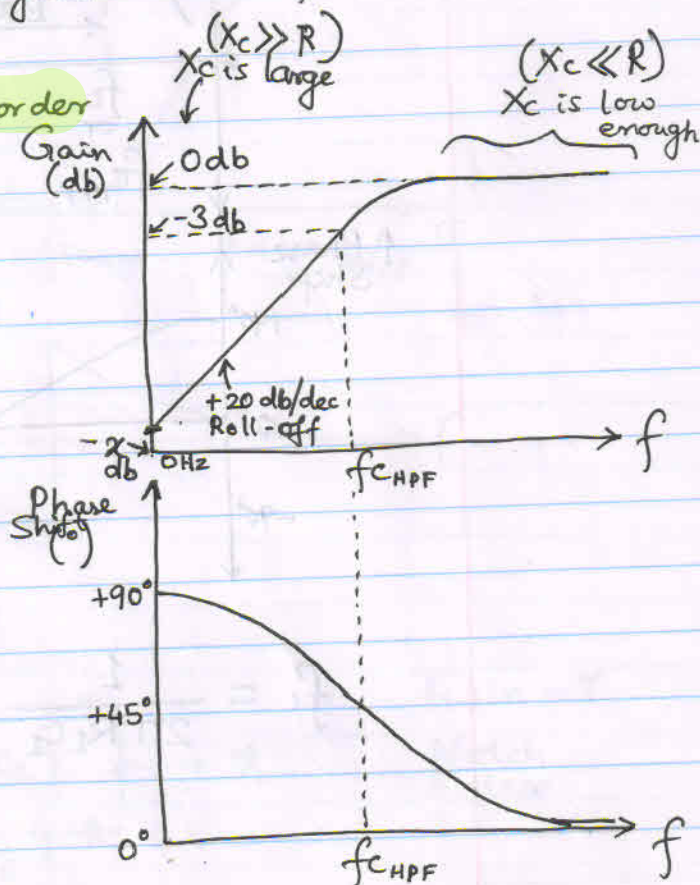 (Xc >> R)
Xc is large
(Xc << R)
Xc is low
enough
order
Gain
(db)
0 db
-3 db
+20 db/dec
Roll-off
-x
db
0Hz
f
fc HPF
Phase
Shift
(°)
+90°
+45°
0°
f
fc HPF